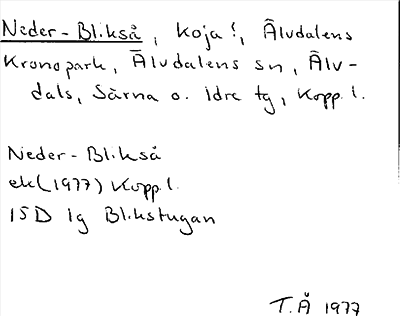 Neder-Blikså, Koja!, Älvdalens
Kronopark, Älvdalens sn, Älv-
dals, Särna o. Idre tg, Kopp. l.
Neder-Blikså
ek (1977) Kopp. l.
15D 1g Blikstugan
T.Å 1977